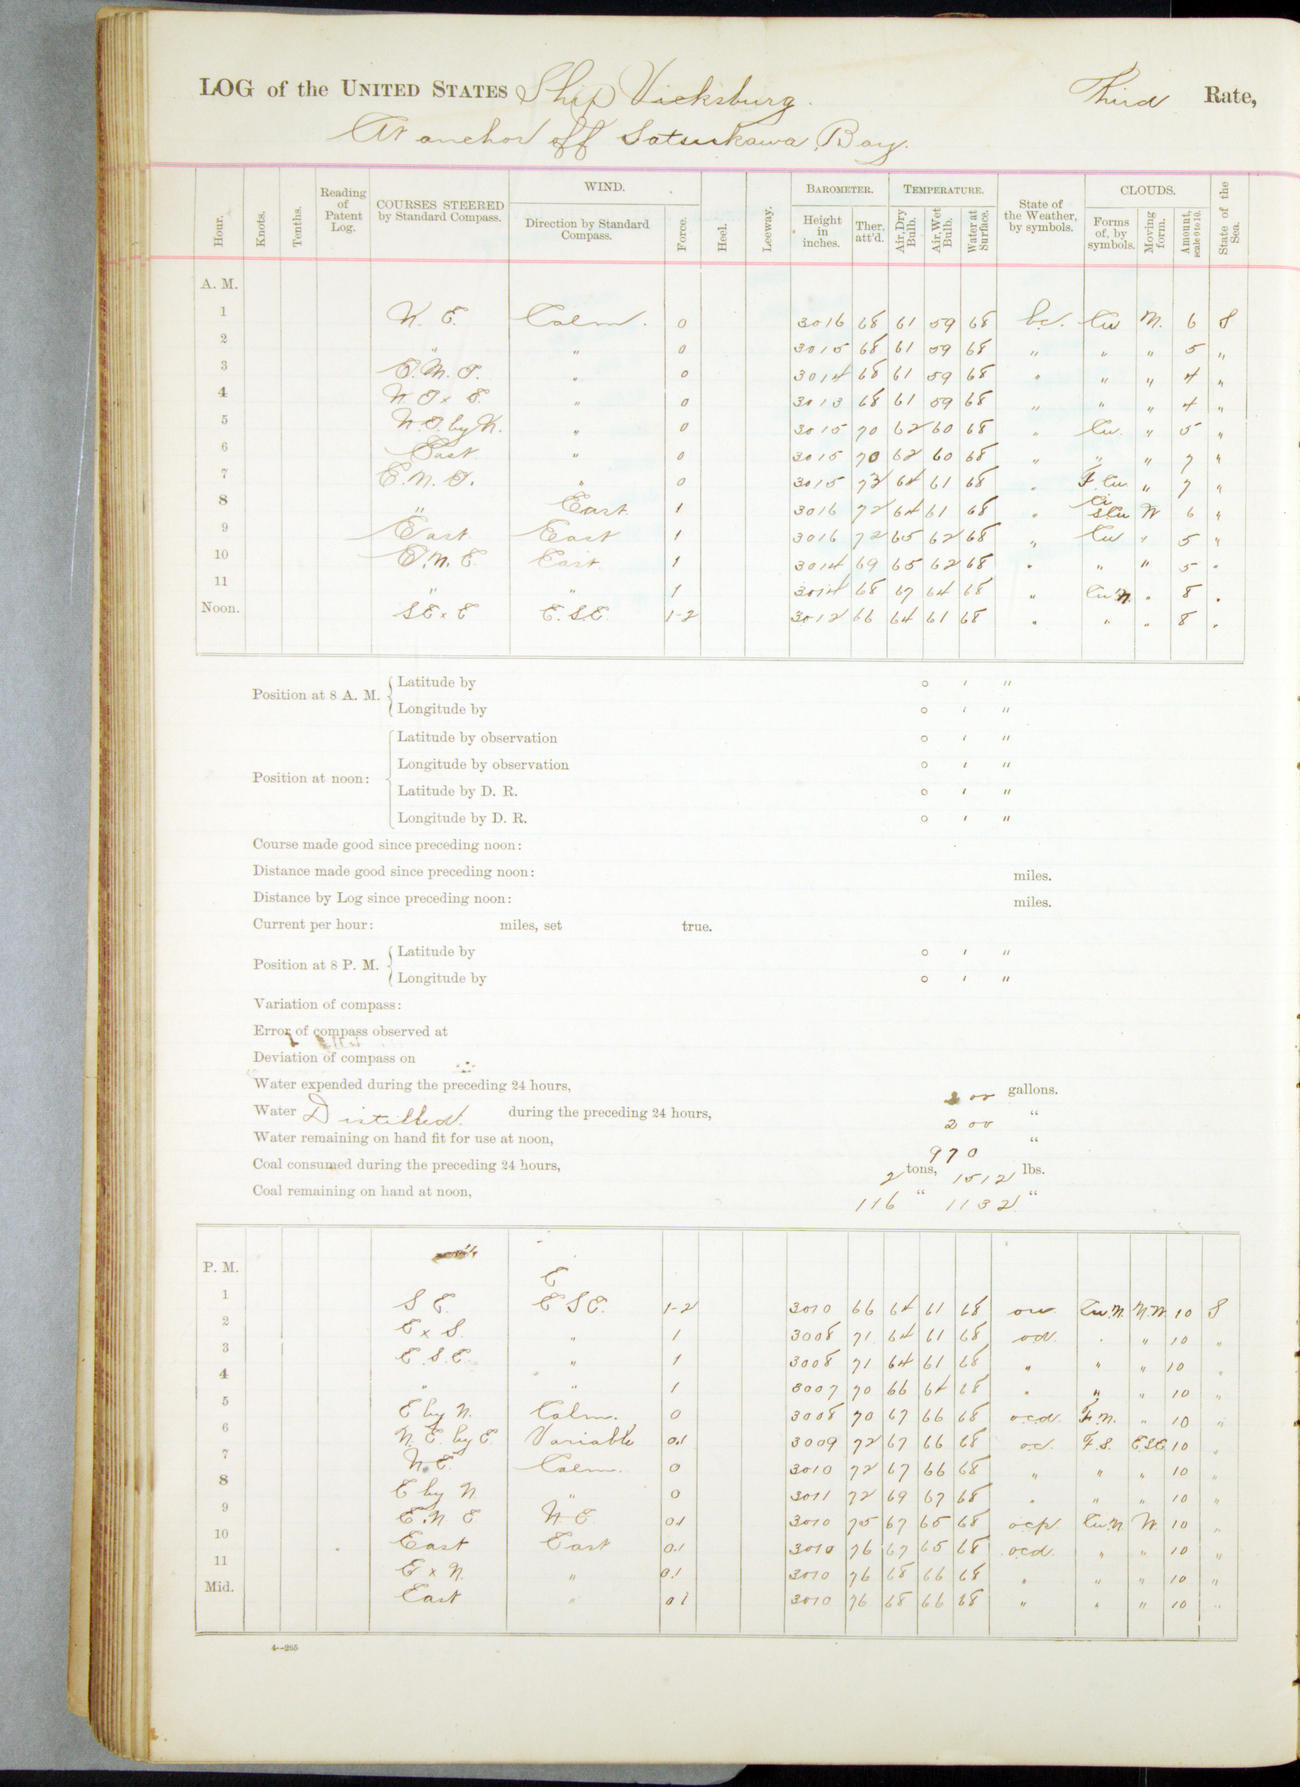 LOG of the UNITED STATES Ship Vicksburg. Third Rate,
At anchor off Satsukawa Bay.
Hour. Knots. Tenths. Reading of Patent Log. COURSES STEERED by Standard Compass. WIND. Direction by Standard Compass. Force. Heel. Leeway. BAROMETER. Height in inches. Ther. att'd. TEMPERATURE. Air, Dry Bulb. Air, Wet Bulb. Water at Surface. State of the Weather, by symbols. CLOUDS. Forms of, by symbols. Moving from. Amount, scale 0 to 10. State of the Sea.
A. M.
1 N. E. Calm. 0 3016 68 61 59 68 bc. Cu N. 6 S
2 " " 0 3015 68 61 59 68 " " " 5 "
3 E.N.E. " 0 3014 68 61 59 68 " " " 4 "
4 N E x E. " 0 3013 68 61 59 68 " " " 4 "
5 N.E. by N. " 0 3015 70 62 60 68 " Cu. " 5 "
6 East. " 0 3015 70 62 60 68 " " " 7 "
7 E.N.E. " 0 3015 73 64 61 68 " F.Cu. " 7 "
8 " East. 1 3016 72 64 61 68 " Ci SCu N 6 "
9 East East 1 3016 72 65 62 68 " Cu " 5 "
10 E.N.E. East. 1 3014 69 65 62 68 " " " 5 "
11 " " 1 3014 68 67 64 68 " Cu.N. " 8 "
Noon. SE x E E. SE. 1-2 3012 66 64 61 68 " " " 8 "
Position at 8 A. M. Latitude by ° ' "
Longitude by ° ' "
Position at noon: Latitude by observation ° ' "
Longitude by observation ° ' "
Latitude by D. R. ° ' "
Longitude by D. R. ° ' "
Course made good since preceding noon:
Distance made good since preceding noon: miles.
Distance by Log since preceding noon: miles.
Current per hour: miles, set true.
Position at 8 P. M. Latitude by ° ' "
Longitude by ° ' "
Variation of compass:
Error of compass observed at
Deviation of compass on
Water expended during the preceding 24 hours, 200 gallons.
Water Distilled. during the preceding 24 hours, 200 "
Water remaining on hand fit for use at noon, 970 "
Coal consumed during the preceding 24 hours, 2 tons, 1512 lbs.
Coal remaining on hand at noon, 116 " 1132 "
P. M.
E
1 S E. E S E. 1-2 3010 66 64 61 68 Cu.N. N.W. 10 S
2 E x S. " 1 3008 71 64 61 68 od. " " 10 "
3 E. S. E. " 1 3008 71 64 61 68 " " " 10 "
4 " " 1 3007 70 66 64 68 " " " 10 "
5 E by N. Calm. 0 3008 70 67 66 68 ocd. F.N. " 10 "
6 N. E. by E. Variable 0.1 3009 72 67 66 68 oc. F.S. ESE 10 "
7 N.E. Calm. 0 3010 72 67 66 68 " " " 10 "
8 E by N " 0 3011 72 69 67 68 " " " 10 "
9 E. N E N E 0.1 3010 75 67 65 68 ocp. Cu.N N. 10 "
10 East East 0.1 3010 76 67 65 68 ocd. " " 10 "
11 E x N. " 0.1 3010 76 68 66 68 " " " 10 "
Mid. East " 0 1 3010 76 68 66 68 " " " 10 "
4--265